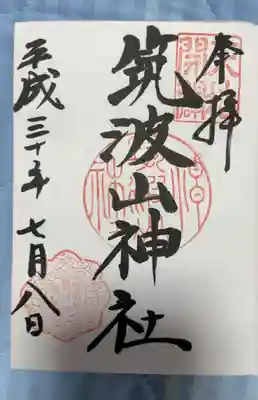 奉拝
筑波山神社
平成三十年七月八日